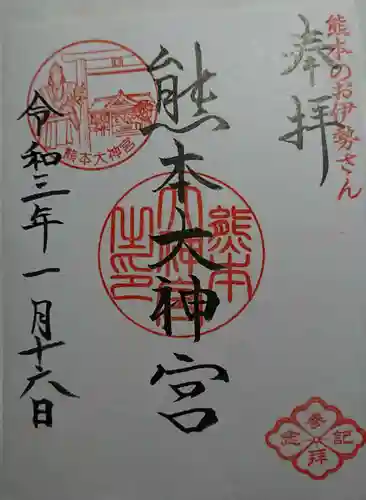 熊本のお伊勢さん
奉拝
熊本大神宮
令和三年一月十六日
熊本大神宮
熊本
大神宮
之印
参拝記念